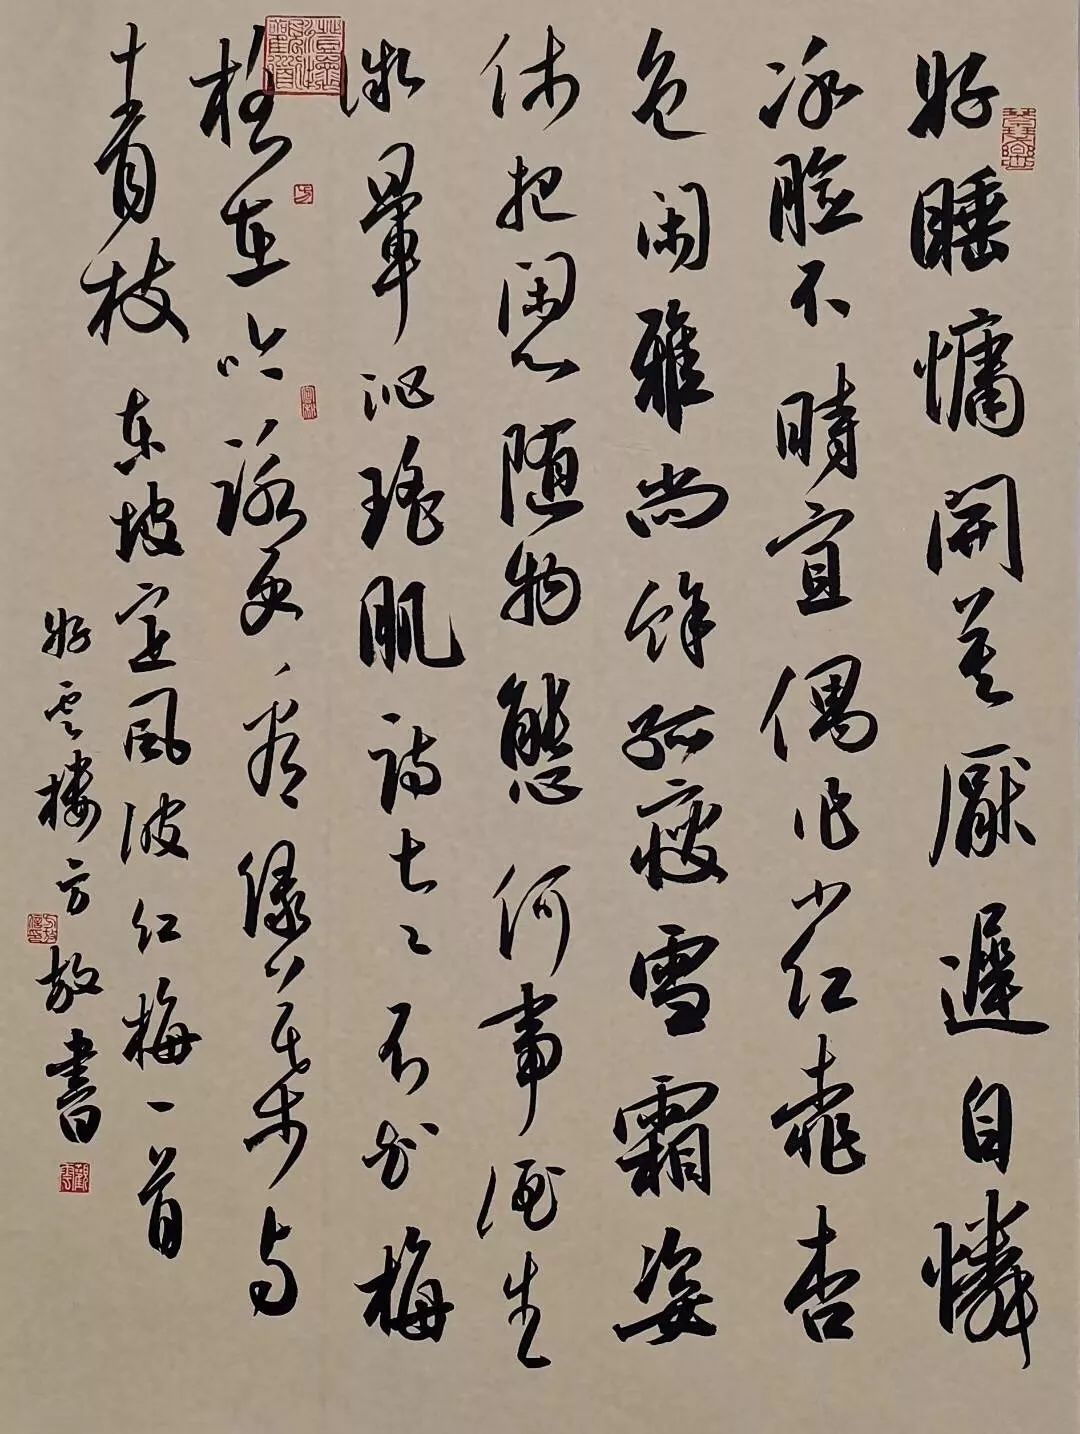 好睡慵開莫厭遲自憐
冰脸不時宜偶作小红桃杏
色閑雅尚餘孤瘦雪霜姿
休把閑心随物態何事酒生
微暈沁瑤肌詩老不知梅
格在吟詠更看绿葉与
青枝 東坡定風波红梅一首
好雲樓方放書